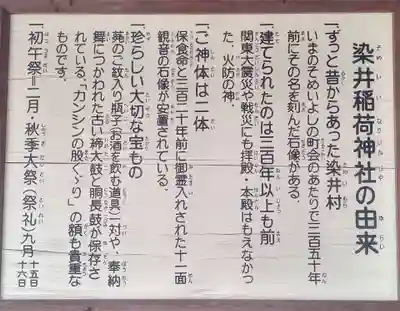 染井稲荷神社の由来
「ずっと昔からあった染井村
いまのそめいよしの町会のあたりで三百五十年
前にその名を刻んだ石像がある。
「建てられたのは三百年以上も前
関東大震災や戦災にも拝殿・本殿はもえなかっ
た、火防の神。
「ご神体は二体
保食命と三百二十年前に御霊入れされた十一面
観音の石像が安置されている。
「珍らしい大切な宝もの
葵のご紋入り瓶子(お酒を飲む道具)一対や、奉納
舞につかわれた古い締太鼓と胴長鼓が保存さ
れている。「カンシンの股くゞり」の額も貴重な
ものです。
「初午祭=二月・秋季大祭(祭礼)九月十五日
十六日